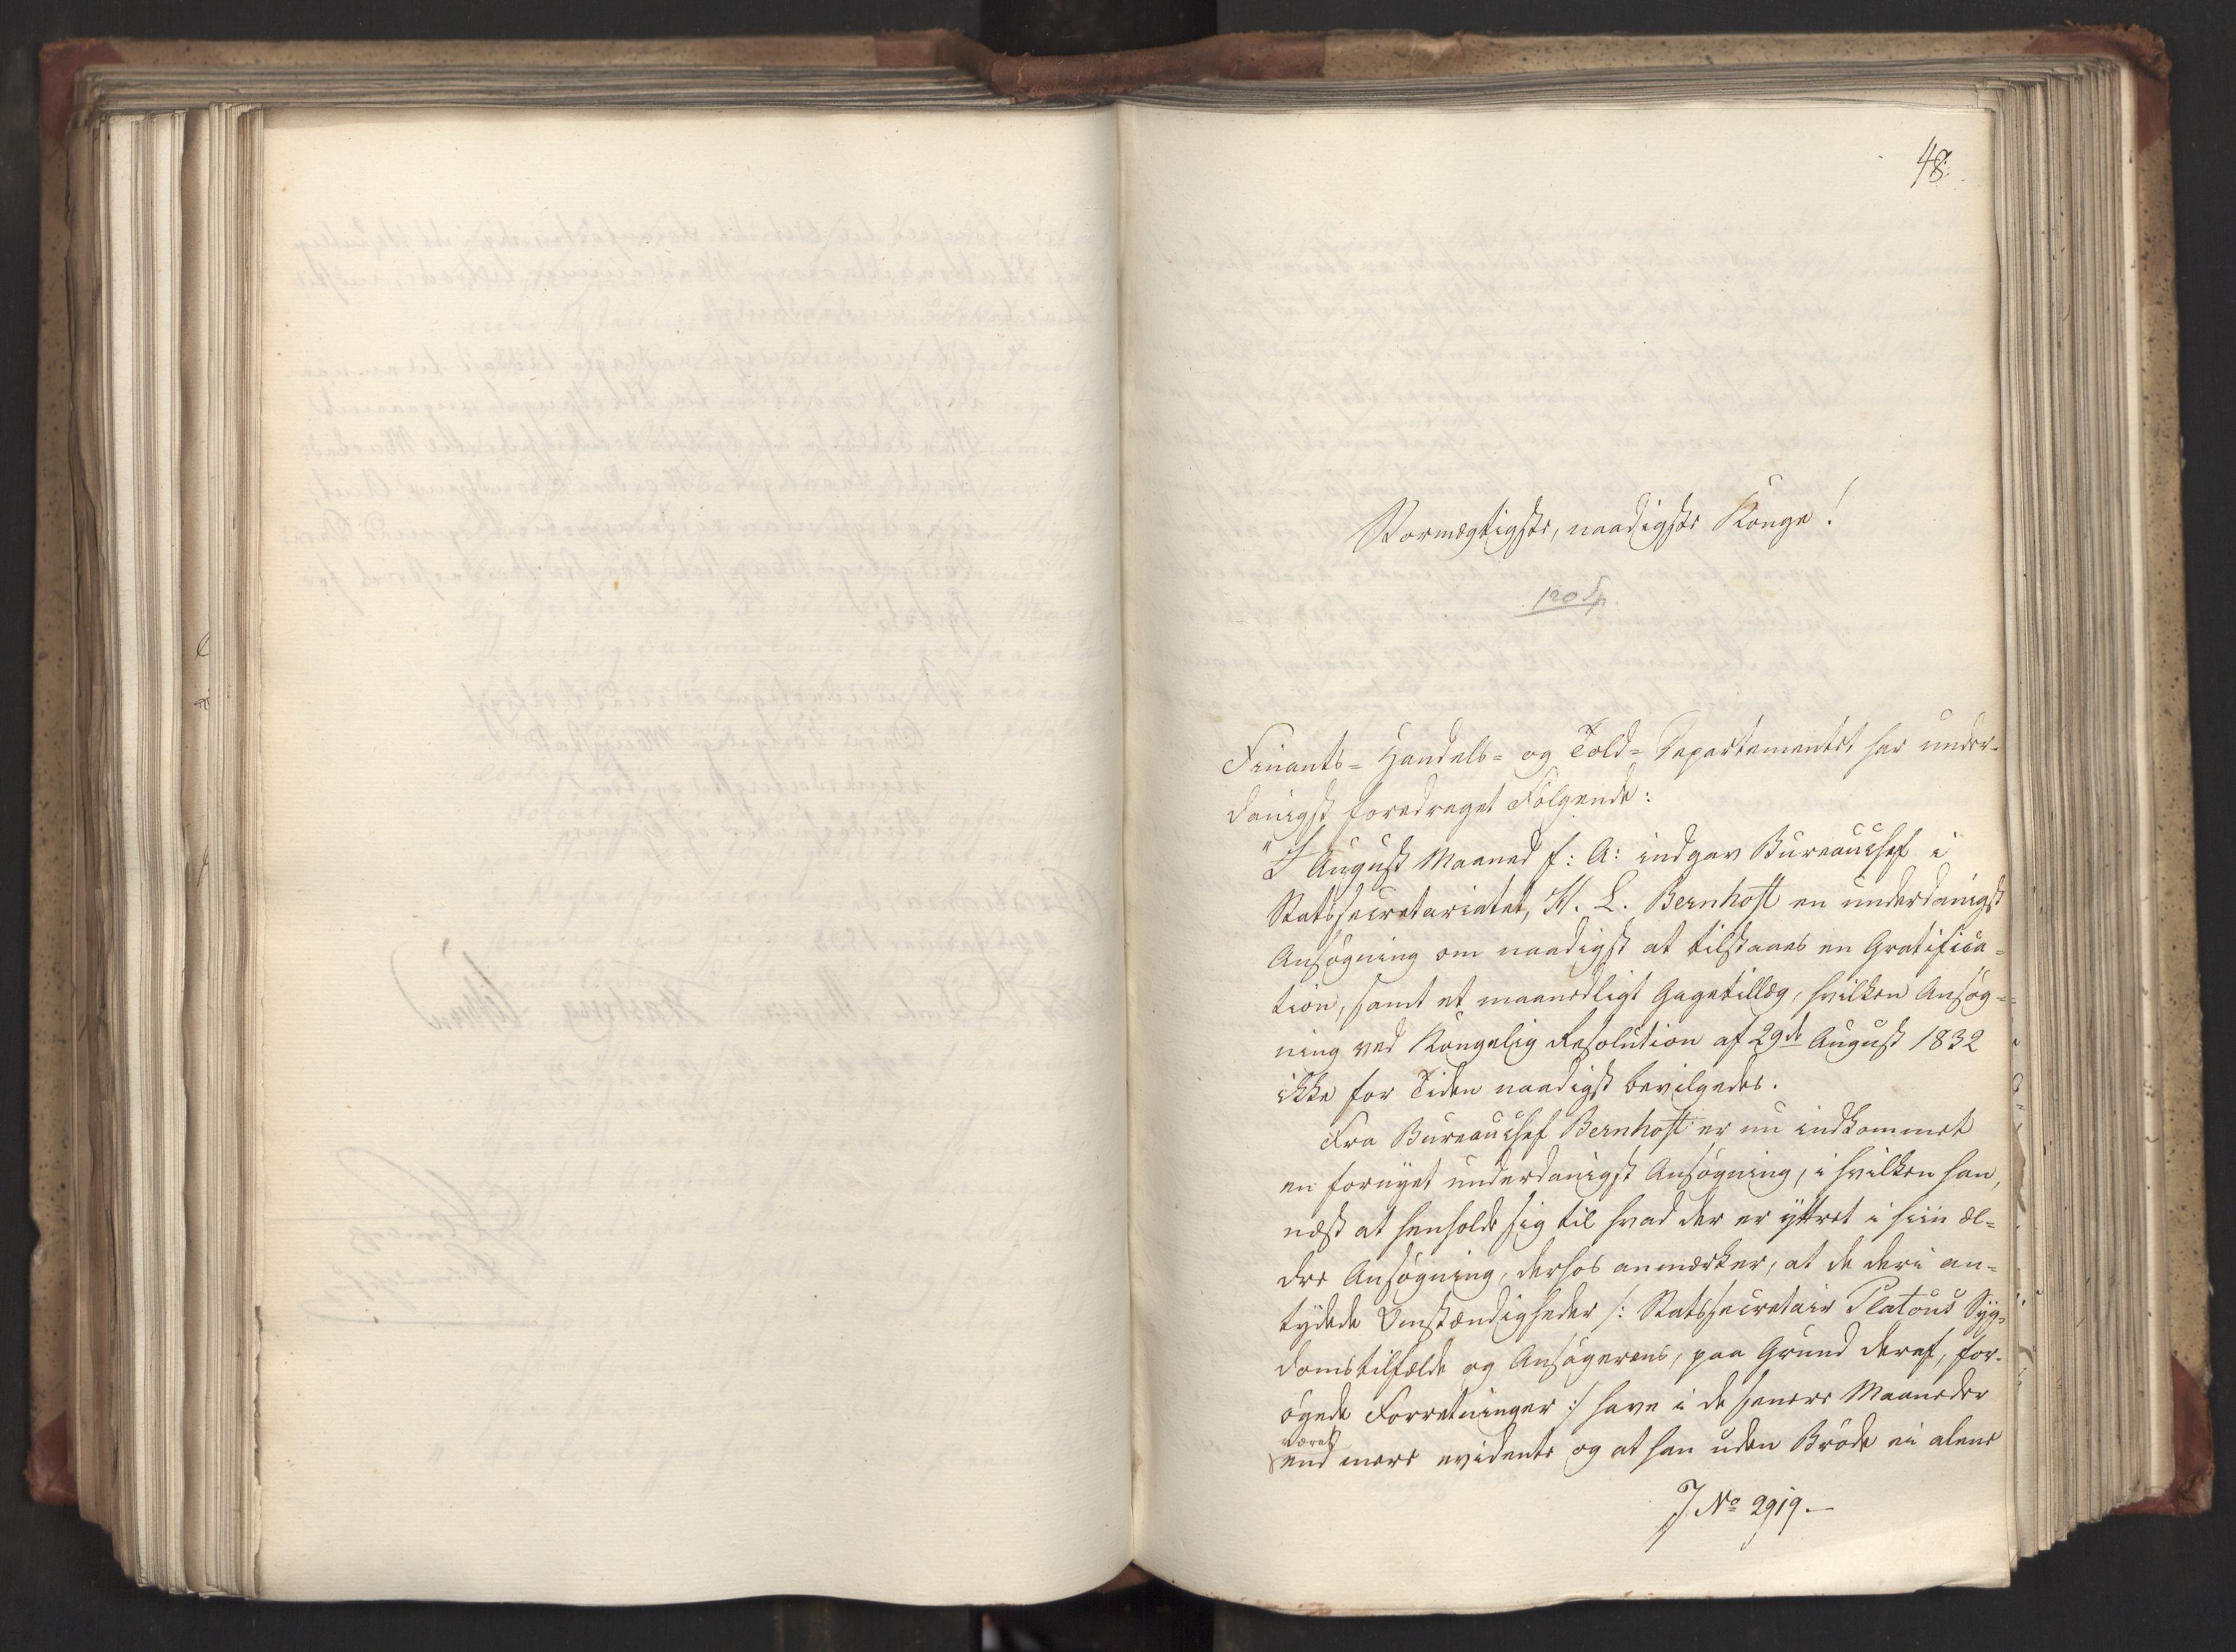 48.
Stormægtigste, naadigste Konge!
Finants- Handels- og Told-Departementet har under-
danigst foredraget Følgende:
"I August Maaned f: A: indgav Bureauchef i
Statssecretariatet, H. L. Bernhoft en underdanigst
Ansøgning om naadigst at tilstaaes en Gratifica-
tion, samt et maanedligt Gagetillæg, hvilken Ansøg-
ning ved Kongelig Resolution af 29de August 1832
ikke for Tiden naadigst bevilgedes.
Fra Bureauchef Bernhoft er nu indkommet
en fornyet underdanigst Ansøgning, i hvilken han,
næst at henholde sig til hvad der er yttret i hiin æl-
dre Ansøgning, derhos anmærker, at de deri an-
tydede Omstændigheder /: Statssecretair Platous Syg-
domstilfælde og Ansøgerens, paa Grund deraf, for-
øgede Forretninger :/ have i de senere Maaneder
været
end mere evidente og at han uden Brøde ei alene
J. No 2919.—